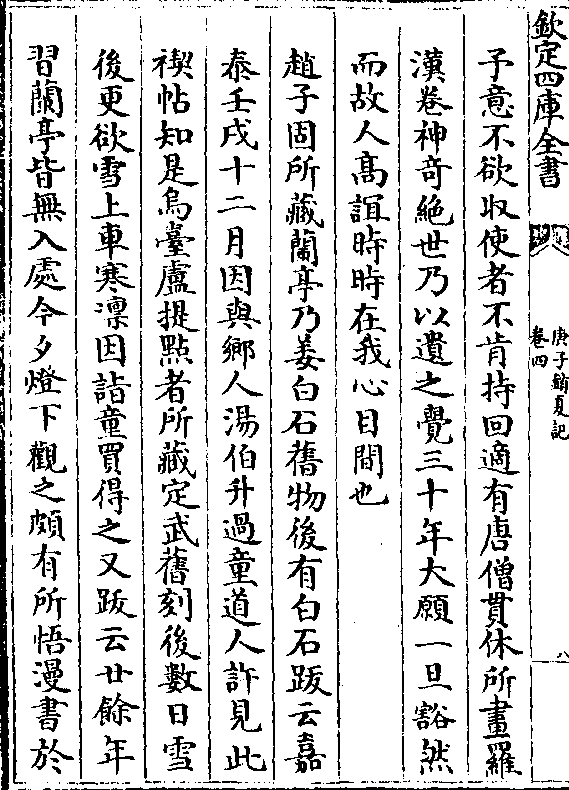 欽定四庫全書
庚子銷夏記
卷四
八
予意不欲収使者不肯持回適有唐僧貫休所畫羅
漢卷神奇絶世乃以遺之覺三十年大願一旦豁然
而故人高誼時時在我心目間也
趙子固所藏蘭亭乃姜白石舊物後有白石跋云嘉
泰壬戌十二月因與鄉人湯伯升過童道人許見此
禊帖知是烏臺盧提點者所藏定武舊刻後數日雪
後更欲雪上車寒凛因詣童買得之又跋云廿餘年
習蘭亭皆無入處今夕燈下觀之頗有所悟漫書於